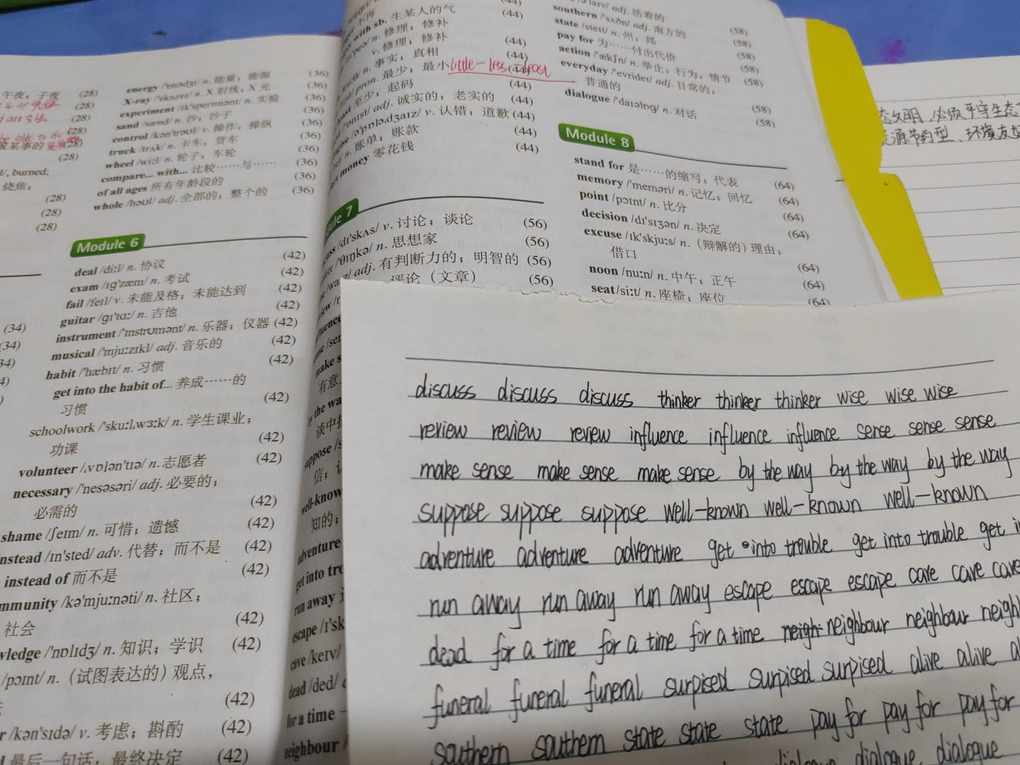 午夜；子夜 (28)
(28)
(28)
(28)
(28)
burned;
烧焦；
(28)
(28)
(28)
(34)
(34)
energy /'enədʒi/ n. 能量；能源 (36)
X-ray /'eksreɪ/ n. X 射线；X 光 (36)
experiment /ɪk'sperɪmənt/ n. 实验 (36)
sand /sænd/ n. 沙；沙子 (36)
control /kən'trəʊl/ v. 操作；操纵 (36)
truck /trʌk/ n. 卡车；货车 (36)
wheel /wiːl/ n. 轮子；车轮 (36)
compare... with... 比较……与…… (36)
of all ages 所有年龄段的 (36)
whole /həʊl/ adj. 全部的；整个的 (36)
Module 6
deal /diːl/ n. 协议 (42)
exam /ɪg'zæm/ n. 考试 (42)
fail /feɪl/ v. 未能及格；未能达到 (42)
guitar /gɪ'tɑː/ n. 吉他 (42)
instrument /'ɪnstrʊmənt/ n. 乐器；仪器 (42)
musical /'mjuːzɪkl/ adj. 音乐的 (42)
habit /'hæbɪt/ n. 习惯 (42)
get into the habit of... 养成……的
习惯 (42)
schoolwork /'skuːl,wɜːk/ n. 学生课业；
功课 (42)
volunteer /ˌvɒlən'tɪə/ n. 志愿者 (42)
necessary /'nesəsəri/ adj. 必要的；
必需的 (42)
shame /ʃeɪm/ n. 可惜；遗憾 (42)
instead /ɪn'sted/ adv. 代替；而不是 (42)
instead of 而不是 (42)
mmunity /kə'mjuːnəti/ n. 社区；
社会 (42)
wledge /'nɒlɪdʒ/ n. 知识；学识 (42)
/pɔɪnt/ n. （试图表达的）观点，
(42)
r /kən'sɪdə/ v. 考虑；斟酌 (42)
最后一句话，最终决定 (42)
with sb. 生某人的气 (44)
n. 修理；修补
v. 修理；修补 (44)
n. 事实；真相 (44)
pron. 最少；最小 little-less-least (44)
至少；起码 (44)
adj. 诚实的；老实的 (44)
v. 认错；道歉 (44)
n. 账单；账款 (44)
money 零花钱 (44)
ule 7
/dɪ'skʌs/ v. 讨论；谈论 (56)
/'θɪŋkə/ n. 思想家 (56)
adj. 有判断力的；明智的 (56)
评论（文章） (56)
make s
有意
the wa
ppose /s
well-know
知的；
adventure
get into tro
run away
escape /ɪ'sk
cave /keɪv/
dead /ded/
for a time
neighbour /
adj. 活着的
southern /'sʌðn/ adj. 南方的 (58)
state /steɪt/ n. 州；邦 (58)
pay for 为……付出代价 (58)
action /'ækʃn/ n. 举止；行为；情节 (58)
everyday /'evrideɪ/ adj. 日常的；
普通的 (58)
dialogue /'daɪəlɒg/ n. 对话 (58)
Module 8
stand for 是……的缩写；代表 (64)
memory /'meməri/ n. 记忆；回忆 (64)
point /pɔɪnt/ n. 比分 (64)
decision /dɪ'sɪʒən/ n. 决定 (64)
excuse /ɪk'skjuːs/ n. （辩解的）理由；
借口 (64)
noon /nuːn/ n. 中午；正午 (64)
seat /siːt/ n. 座椅；座位 (64)
discuss discuss discuss thinker thinker thinker wise wise wise
review review review influence influence influence sense sense sense
make sense make sense make sense by the way by the way by the way
suppose suppose suppose well-known well-known well-known
adventure adventure adventure get into trouble get into trouble get i
run away run away run away escape escape escape cave cave cave
dead for a time for a time for a time neigh neighbour neighbour neigh
funeral funeral funeral surpised surpised surpised alive alive al
southern southern state state state pay for pay for pay for
dialogue dialogue